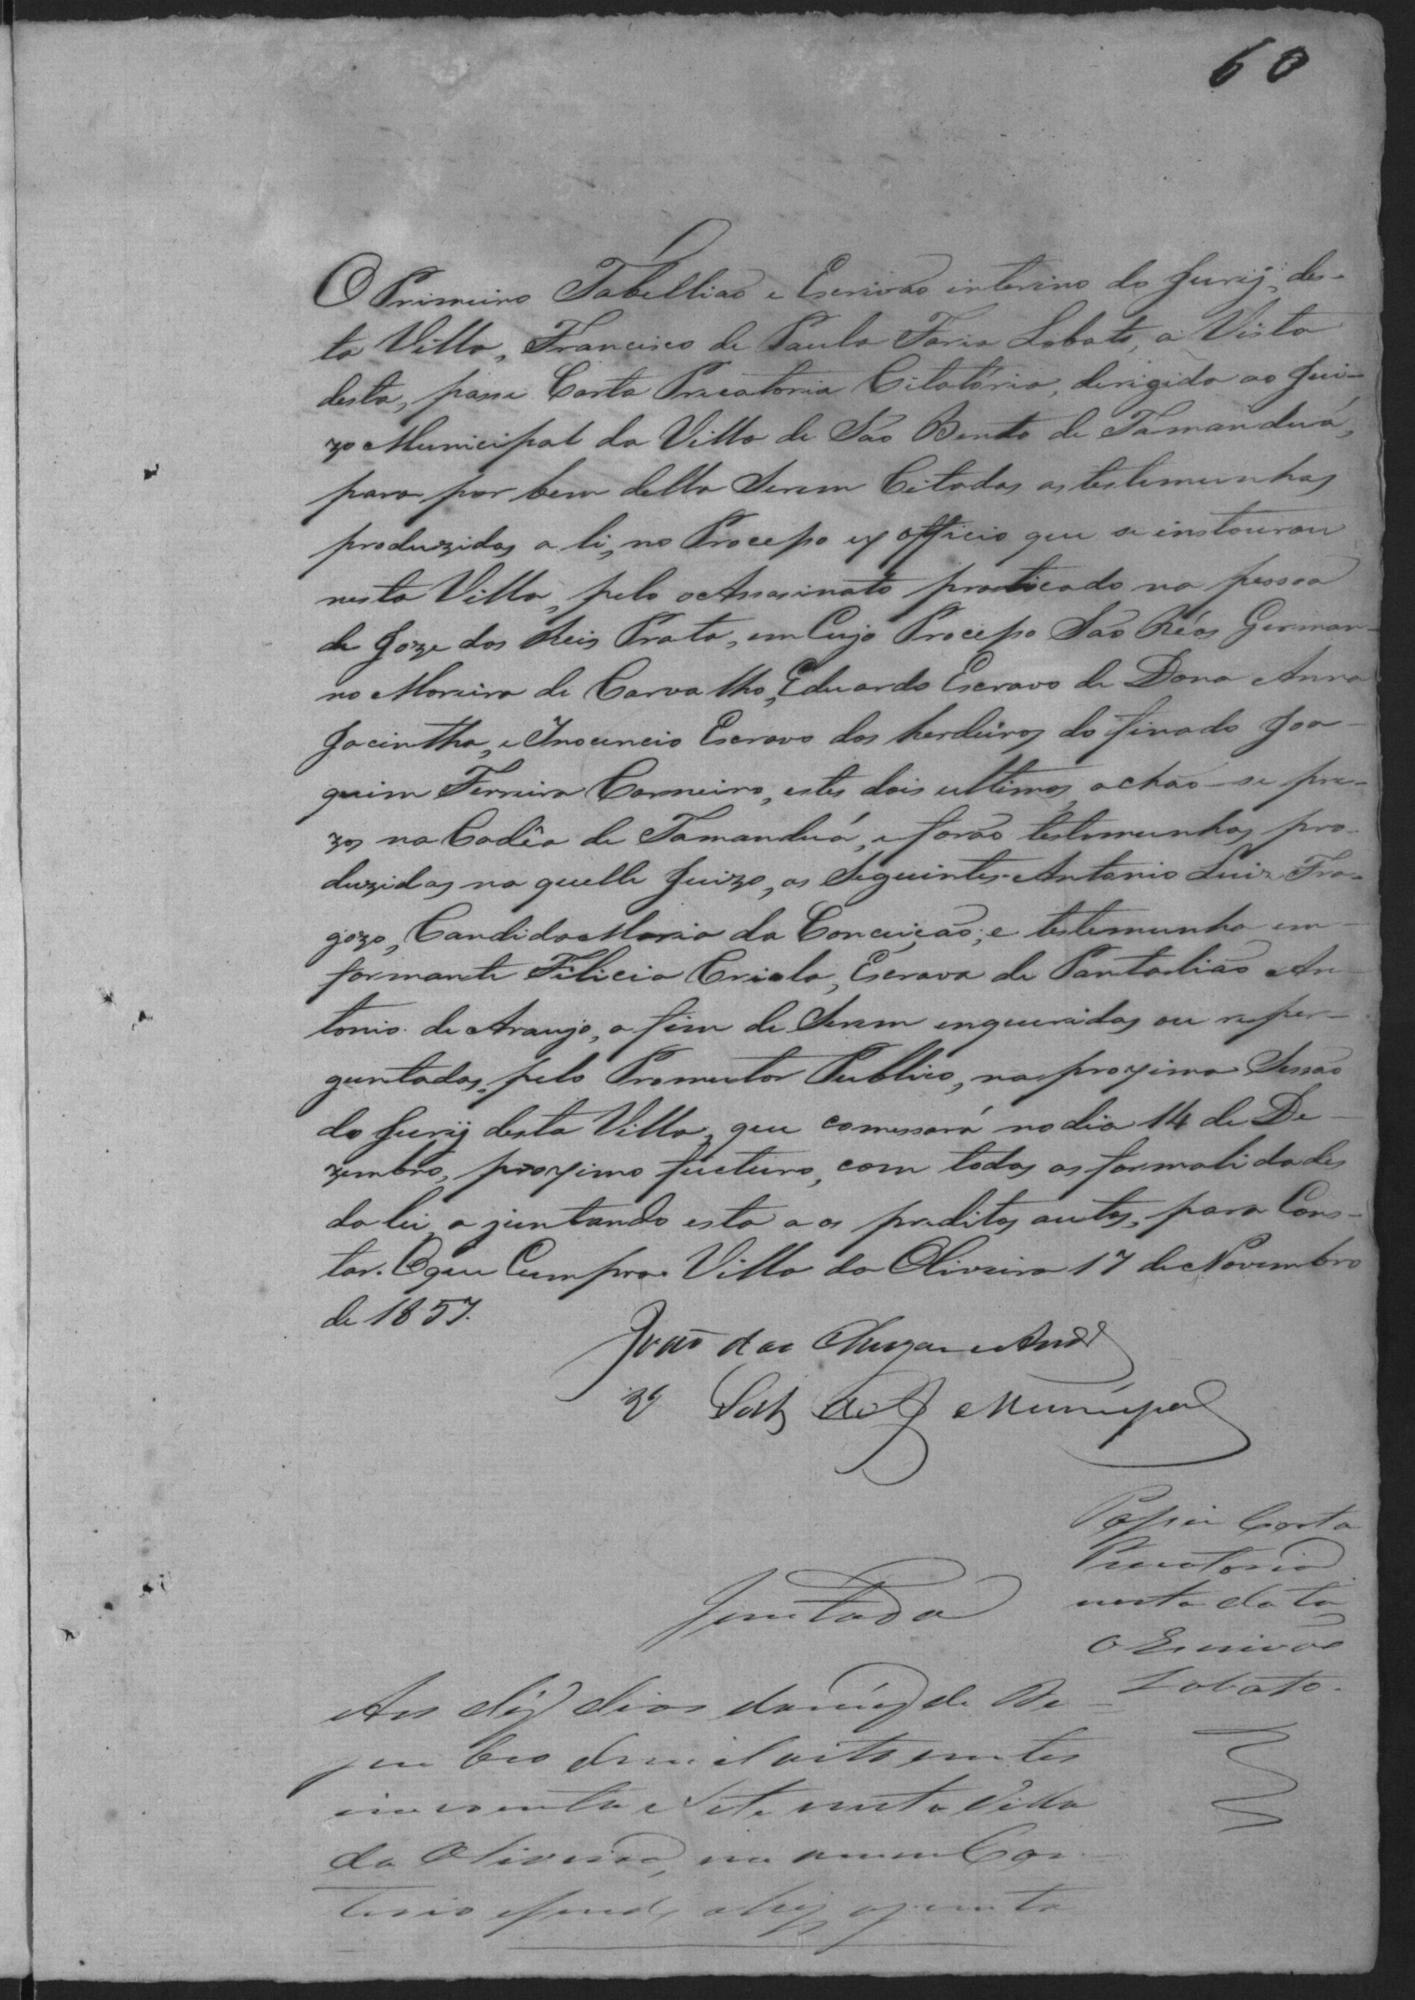 60
O Primeiro Tabellião e Escrivão interino do Jury, des-
ta Villa, Francisco de Paula Faria Lobato, a Vista
desta, passe Carta Precatoria Citatória, derigida ao Jui-
zo Municipal da Villa de São Bento de Tamanduá,
para por bem della Serem Citadas as testemunhas
produzidas a li, no Processo ex officio que se instourou
nesta Villa, pelo Assasinato praticado na pessoa
de Joze dos Reis Prata, em Cujo Processo São Réos Germa-
no Moreira de Carvalho, Eduardo Escravo de Dona Anna
Jacintha, e Inocencio Escravo dos herdeiros do finado Joa-
quim Ferreira Carneiro, estes dois ultimos, achão-se pre-
zos na Cadêa de Tamanduá, e forão testemunhas, pro-
duzidas na quelle Juizo, as Seguintes Antonio Luiz Fra-
gozo, Candida Maria da Conceição; e testemunha em-
formante Felicia Criola, Escrava de Pantalião An-
tonio de Araujo, a fim de Serem enqueridas ou reper-
guntadas, pelo Promutor Publico, na proxima Sessão
do Jury desta Villa, que comessará no dia 14 de De-
zembro, proximo fucturo, com todas as formalidades
da lei, a juntando esta a os preditos autos, para Cons-
tar. O que Cumpra. Villa da Oliveira 17 de Novembro
de 1857.
João das Chagas Andre
Municipal
Passei Carta
Precatoria
nesta data
O Escrivão
Lobato.
Juntada
Aos déz dias do mez de De-
zembro de mil oito centos
cincoenta e Sete nesta Villa
da Oliveira, em meu Car-
torio